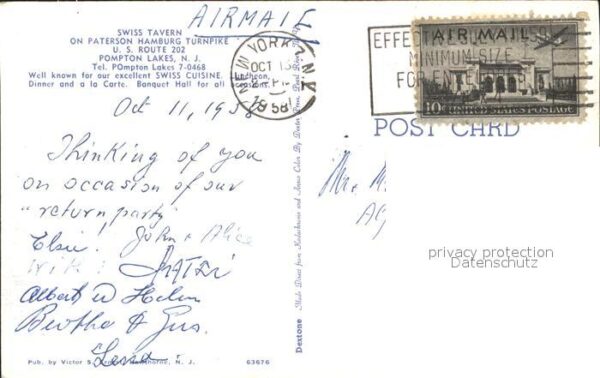 AIRMAIL
SWISS TAVERN
ON PATERSON HAMBURG TURNPIKE
U. S. ROUTE 202
POMPTON LAKES, N. J.
Tel. POmpton Lakes 7-0468
Well known for our excellent SWISS CUISINE. Luncheon,
Dinner and a la Carte. Banquet Hall for all occasions.
Oct 11, 1958
Thinking of you
on occasion of our
"return party"
Elsie! John + Alice
Albert W Helen
Bertha & Gus.
Lena.
Pub. by Victor S. Hawthorne, N. J.
63676
Dextone Made Direct from Kodachrome and Ansco Color By Dexter Press, Pearl River, N. Y.
NEW YORK, N.Y.
OCT 13
PM
1958
EFFECTIVE
MINIMUM SIZE
FOR
AIR MAIL
10¢ UNITED STATES POSTAGE
POST CARD
privacy protection
Datenschutz